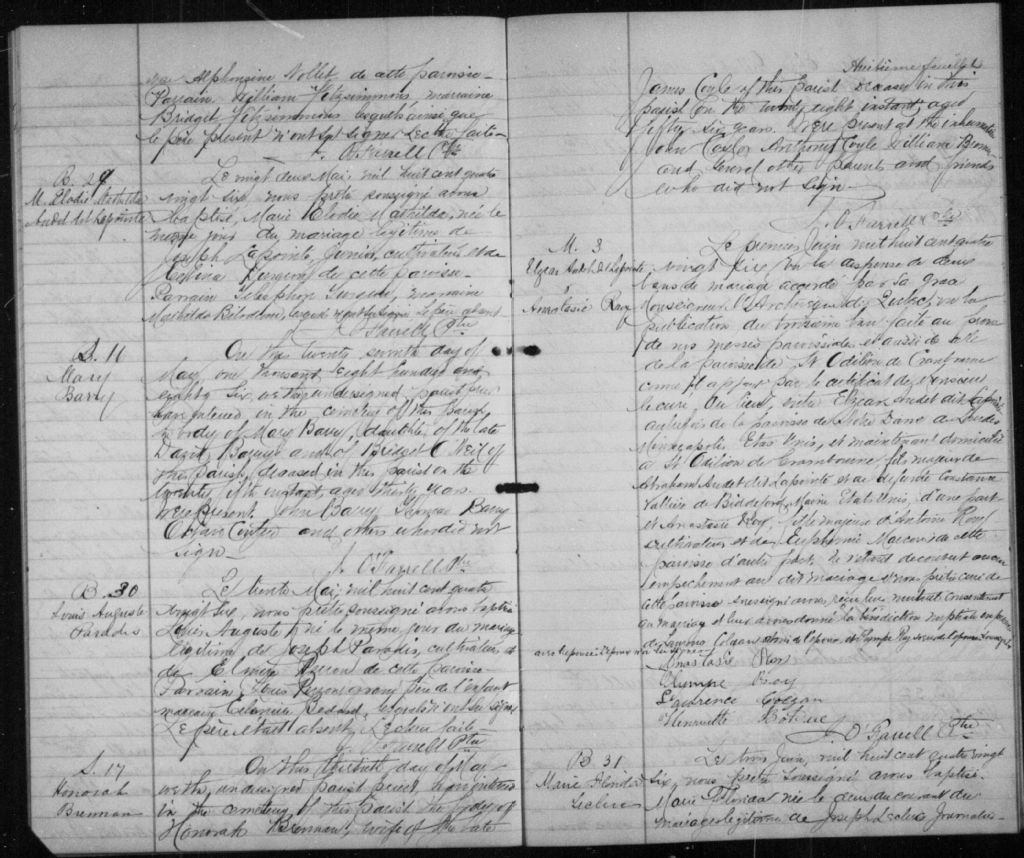 née Alphonsine Nollet de cette paroisse
Parrain William Fitzsimmons marraine
Bridget Fitzsimmons lesquels ainsi que
le père présent n'ont pu signer Lecture faite
J. O'Farrell Ptre
B. 29
M. Elodie Mathilda
Audet dit Lapointe
Le vingt deux Mai, mil huit cent quatre
vingt six, nous prêtre soussigné avons
baptisé, Marie Elodie Mathilda, née le
même jour du mariage légitime de
Joseph Lapointe, Junior, cultivateur et de
de cette paroisse
Parrain Telesphore marraine
Mathilda Bilodeau, lesquels n'ont pu signer le père absent
J. O'Farrell Ptre
S. 11
Mary
Barry
On this twenty seventh day of
May, one thousand eight hundred and
eighty six, we the undersigned, parish priest
have interred in the cemetery of this Parish
the body of Mary Barry, daughter of the late
David and of Bridget O'Neil of
this Parish, deceased in this parish on the
of the instant, aged thirty years
Were present John Barry Thomas Barry
and others who did not
sign
J. O'Farrell Ptre
B. 30
Louis Auguste
Paradis
Le trente Mai, mil huit cent quatre
vingt six, nous prêtre soussigné avons baptisé
Louis Auguste, né le même jour du mariage
légitime de Joseph Paradis, cultivateur, et
de Elmire de cette paroisse
Parrain Louis de l'enfant
marraine Bedard, lesquels n'ont su signer
Le père était absent. Lecture faite
J. O'Farrell Ptre
S. 17
Honorah
Brennan
On this thirtieth day of May
we the undersigned parish priest, have interred
in the cemetery of this parish the body of
Honorah Brennan, wife of the late
Huitième feuillet
James Coyle of this Parish deceased in this
parish on the twenty eight instant, aged
fifty six years. Were present at the inhumation
John Coyle, Anthony Coyle William
and several other parents and friends
who did not sign
J. O'Farrell Ptre
M. 3
Elzear Audet dit Lapointe
&
Anastasie Roy
Le premier Juin mil huit cent quatre
vingt six, vu la dispense de deux
bans de mariage accordée par Sa Grace
Monseigneur l'Archevêque de Québec, vu la
publication du troisième ban faite au prône
de nos messes paroissiales et aussi de celle
de la paroisse de St Odilon de Cranbourne
comme il appert par le certificat de Monsieur
le curé, du lieu, entre Elzear Audet dit Lapointe
autrefois de la paroisse de Notre Dame de Lourdes
Minneapolis, Etats Unis, et maintenant domicilié
à St Odilon de Cranbourne, fils majeur de
Abraham Audet dit Lapointe et de défunte Constance
Vallière de Biddeford, Maine Etats Unis, d'une part
et Anastasie Roy, fille majeure d'Antoine Roy
cultivateur et de Euphemie Marcoux de cette
paroisse d'autre part, ne s'étant découvert aucun
empêchement au dit mariage, nous prêtre curé de
cette paroisse soussigné avons reçu leur mutuel consentement
au mariage et leur avons donné la bénédiction nuptiale en présence
de Laurence Colgan ami de l'époux, de Olympe Roy soeur de l'épouse soussignés
avec l'épouse l'époux n'a su signer
Anastasie Roy
Olympe Roy
Laurence Colgan
Henriette
J. O'Farrell Ptre
B. 31
Marie Florida
Leclerc
Le trois Juin, mil huit cent quatre vingt
six, nous prêtre soussigné avons baptisé
Marie Florida née le deux du courant du
mariage légitime de Joseph Leclerc Journalier